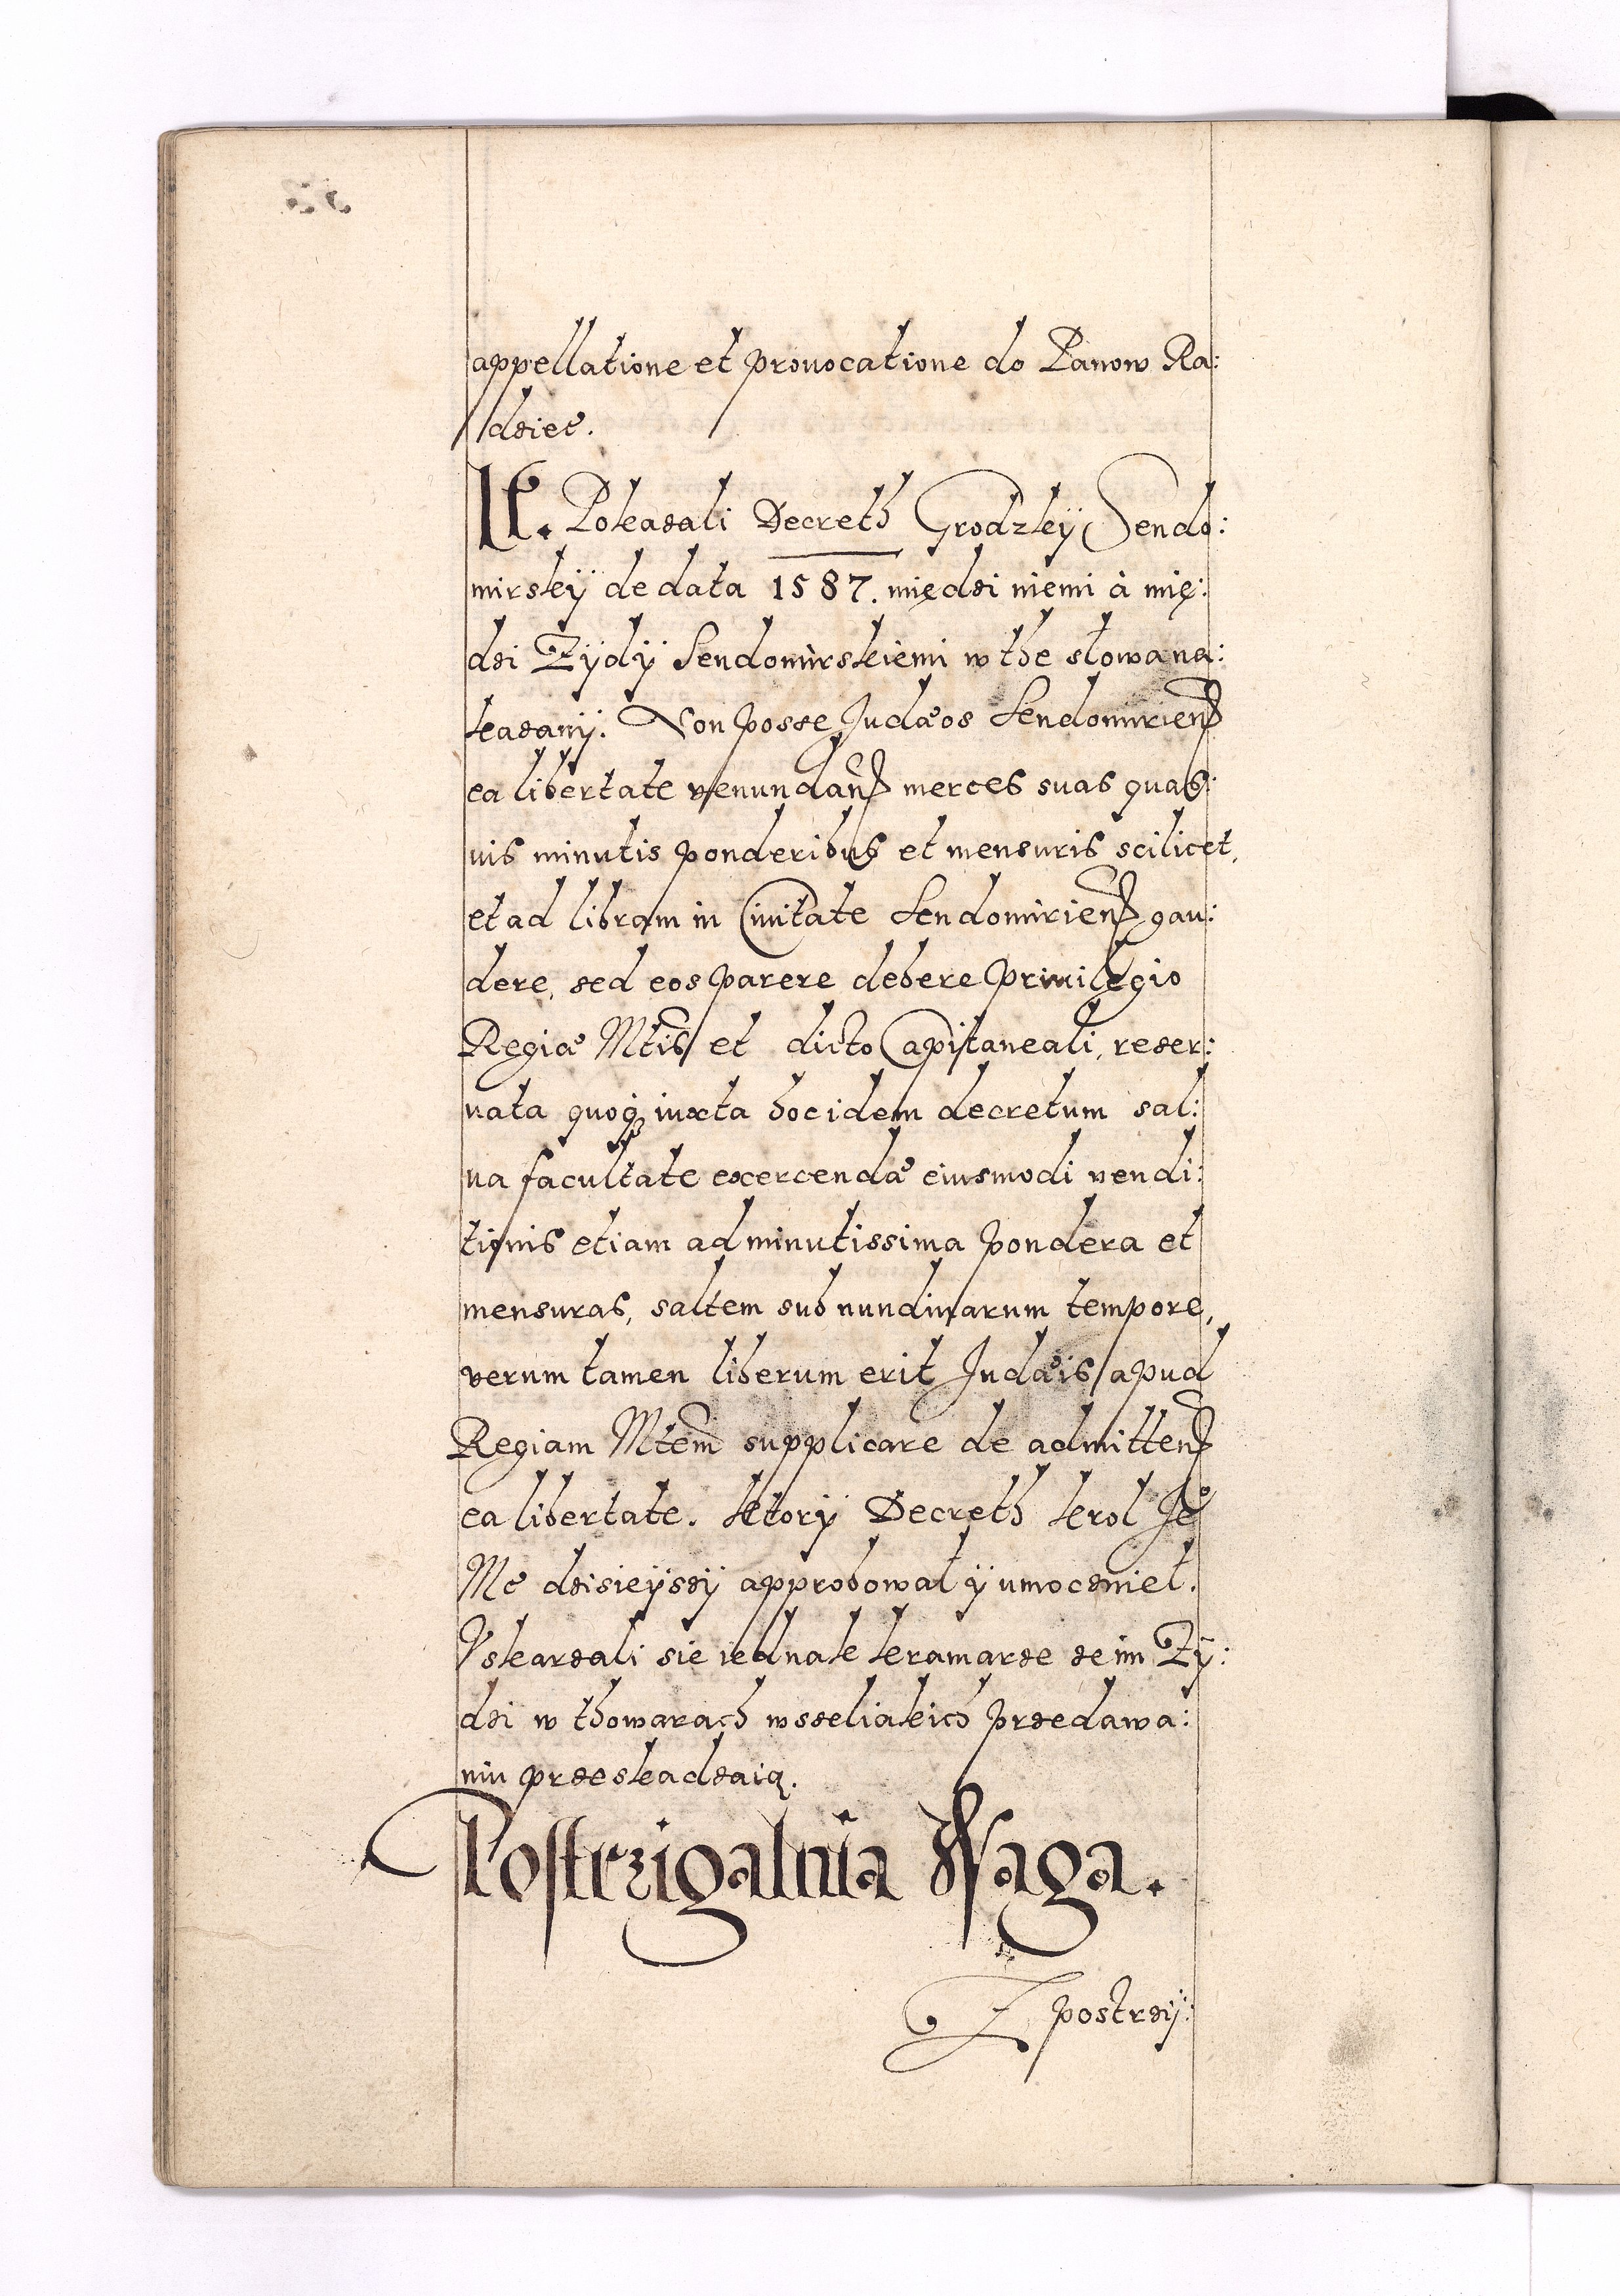 appellatione et prouocatione do Panow Ra:
dziec.
It. Pokazali Decreth Grodzkÿ Sendo:
mirskÿ de data 1587. międzi niemi à mię:
dzi Zÿdÿ Sendomirskiemi w the słowa na:
kazanÿ. Non posse Judæos Sendomirien̄
ea libertate venundan̄ merces suas quas:
uis minutis ponderibus et mensuris scilicet,
et ad libram in Ciuitate Sendomirien̄ gau:
dere, sed eos parere debere Priuilegio
Regiæ Mtis et dicto Capitaneali, reser:
uata quoq; iuxta hoc idem decretum sal:
ua facultate exercendæ eiusmodi vendi:
tionis etiam ad minutissima pondera et
mensuras, saltem sub nundinarum tempore,
verum tamen liberum erit Judæis apud
Regiam Mtem supplicare de admitten̄
ea libertate. Ktorÿ Decreth Krol Je͛
Mc dzisieÿszÿ approbował ÿ umocznieł.
Vskarzali sie iednak kramarze ze im Zÿ:
dzi w thowarach wszeliakich przedawa:
niu przeskadzaią.
Postrzigalnia Waga.
Z postrzÿ: